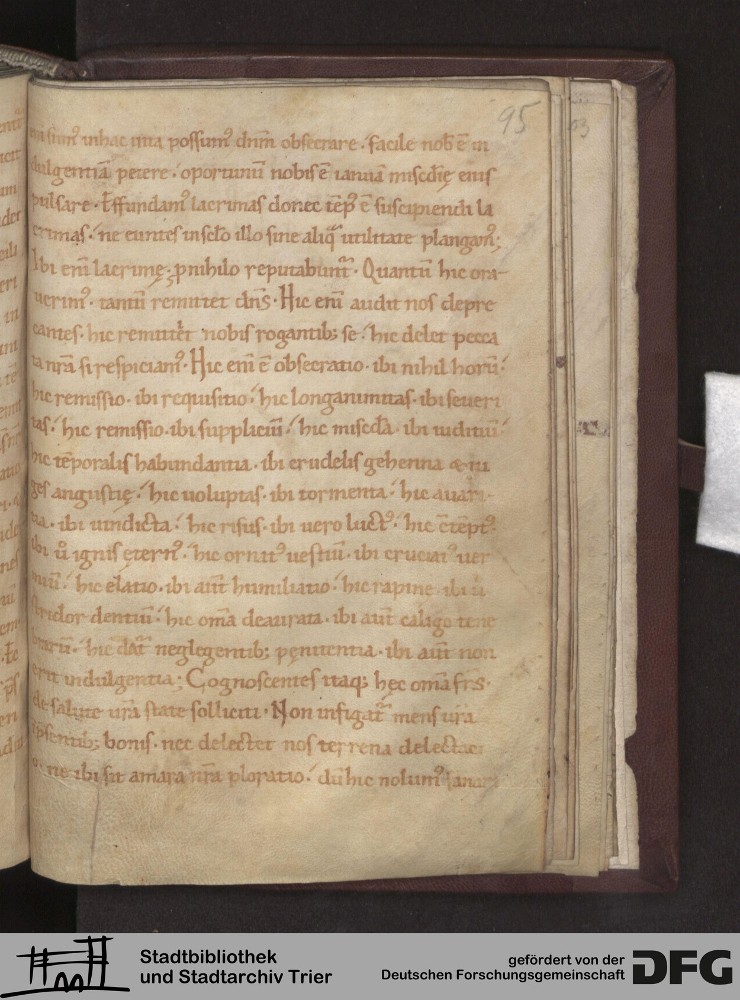 95
sum᷒ in hac uita possum᷒ dnm̄ obsecrare · facile nob̄ ē in
dulgentiā petere · oportunū nobis ē ianuā miscdīę eius
pulsare · Effundam᷒ lacrimas donec tēp᷒ ē suscipiendi la
crimas · ne euntes in scl̄o illo sine aliq̄ utilitate plangam᷒;
Ibi enī lacrimę · p nihilo reputabunt᷑ · Quantū hic ora
uerim᷒ · tantū remittet dn̄s · Hic enī audit nos depre
cantes · hic remittet nobis rogantib; se · hic delet pecca
ta nrā si respiciam᷒ · Hic enī ē obsecratio · ibi nihil horū ·
hic remissio · ibi requisitio · hic longanimitas · ibi seueri
tas · hic remissio · ibi suppliciū · hic miscdīa · ibi iuditiū
hic tēporalis habundantia · ibi crudelis gehenna & iu
ges angustię · hic uoluptas · ibi tormenta · hic auari
tia · ibi uindicta · hic risus · ibi uero luct᷒ · hic cōtēpt᷒
ibi ů ignis ętern᷒ · hic ornat᷒ uestiū · ibi cruciat᷒ uer
miū · hic elatio · ibi aūt humiliatio · hic rapine · ibi ů
stridor dentiū · hic omā deaurata · ibi aūt caligo tene
brarū · hic dat᷑ neglegentib; pęnitentia · ibi aūt non
erit indulgentia; Cognoscentes itaq; hęc omā frs̄ ·
de salute urā state solliciti · Non infigat᷑ mens urā
psentib; bonis · nec delectet nos terrena delectaci
o · ne ibi sit amara nrā ploratio · dū hic nolum᷒ sanari
93
Stadtbibliothek
und Stadtarchiv Trier
gefördert von der
Deutschen Forschungsgemeinschaft
DFG